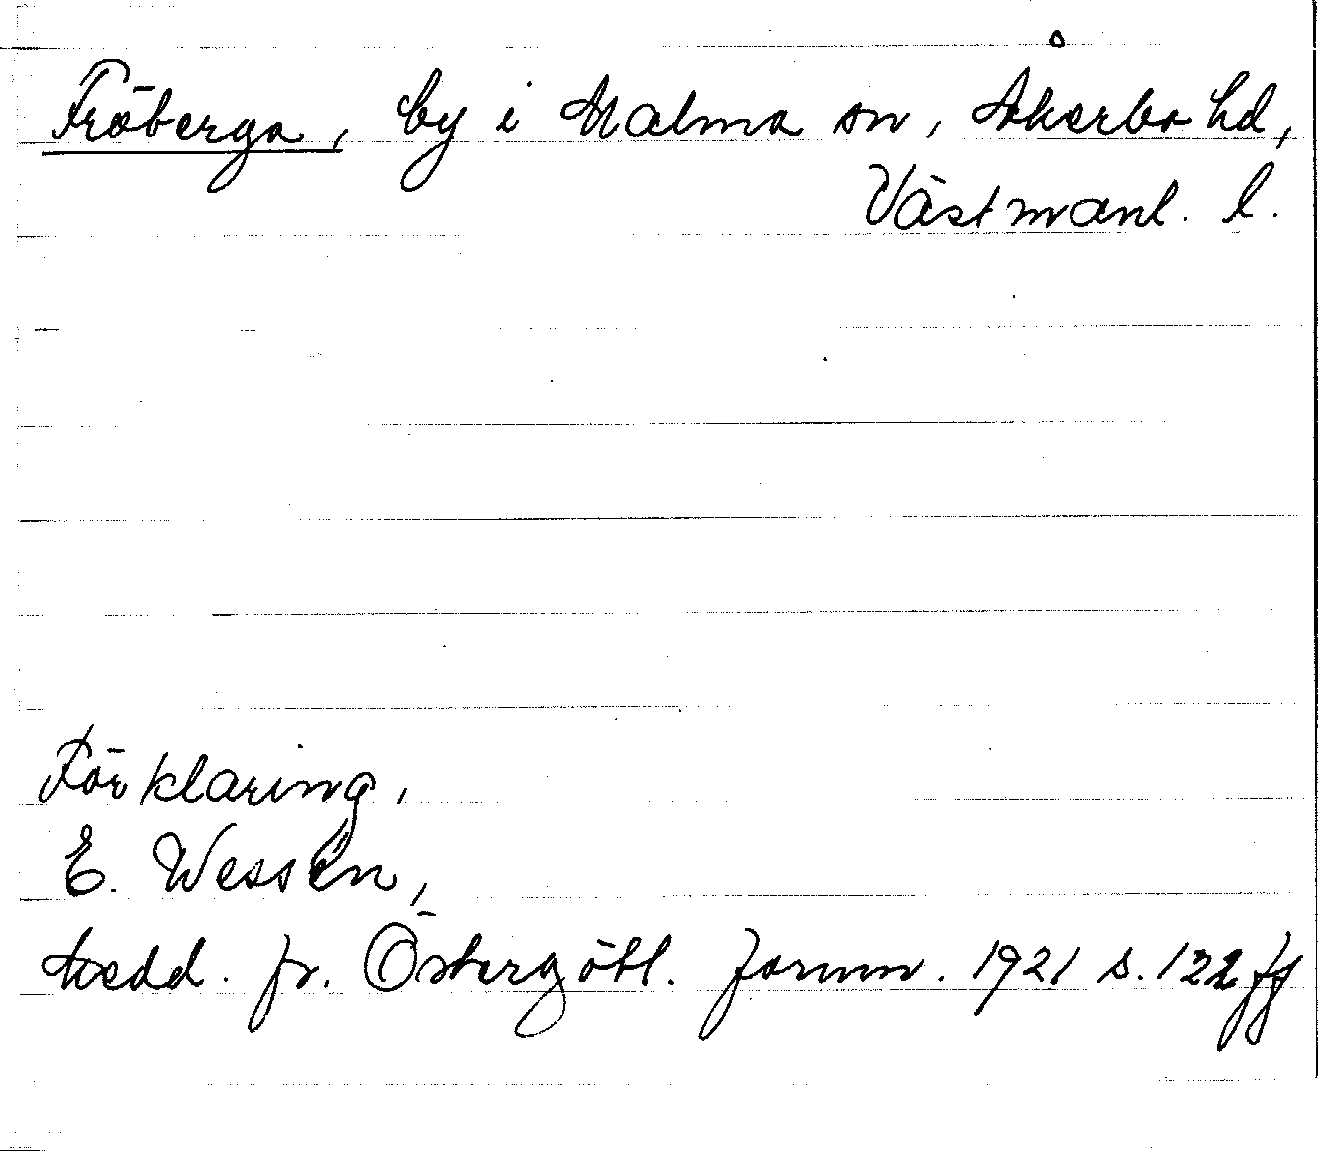 Fröberga, by i Malma sn, Åkerbo hd,
Västmanl. l.
Förklaring,
E. Wessén,
Medd. fr. Östergötl. fornm. 1921 s. 122 ff